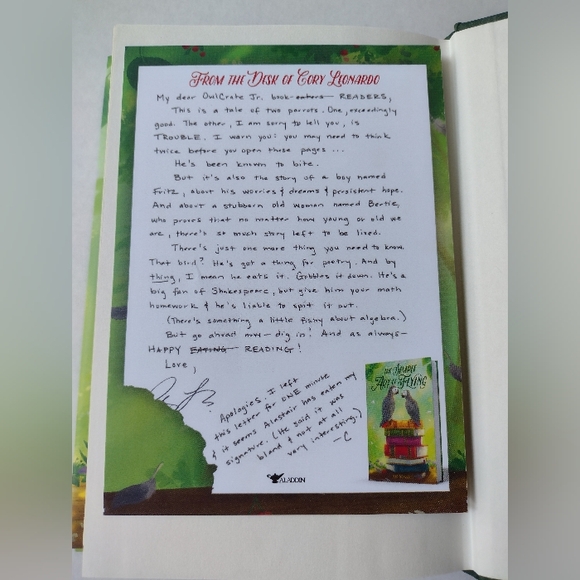 FROM THE DESK OF CORY LEONARDO
My dear OwlCrate Jr. book-eaters READERS,
This is a tale of two parrots. One, exceedingly
good. The other, I am sorry to tell you, is
TROUBLE. I warn you: you may need to think
twice before you open these pages ...
He's been known to bite.
But it's also the story of a boy named
Fritz, about his worries & dreams & persistent hope.
And about a stubborn old woman named Bertie,
who proves that no matter how young or old we
are, there's so much story left to be lived.
There's just one more thing you need to know.
That bird? He's got a thing for poetry. And by
thing, I mean he eats it. Gobbles it down. He's a
big fan of Shakespeare, but give him your math
homework & he's liable to spit it out.
(There's something a little fishy about algebra.)
But go ahead now – dig in! And as always–
HAPPY EATING READING!
Love,
Apologies. I left
this letter for ONE minute
& it seems Alastair has eaten my
signature. (He said it was
bland & not at all
very interesting.)
–C
THE SIMPLE
ART OF FLYING
ALADDIN